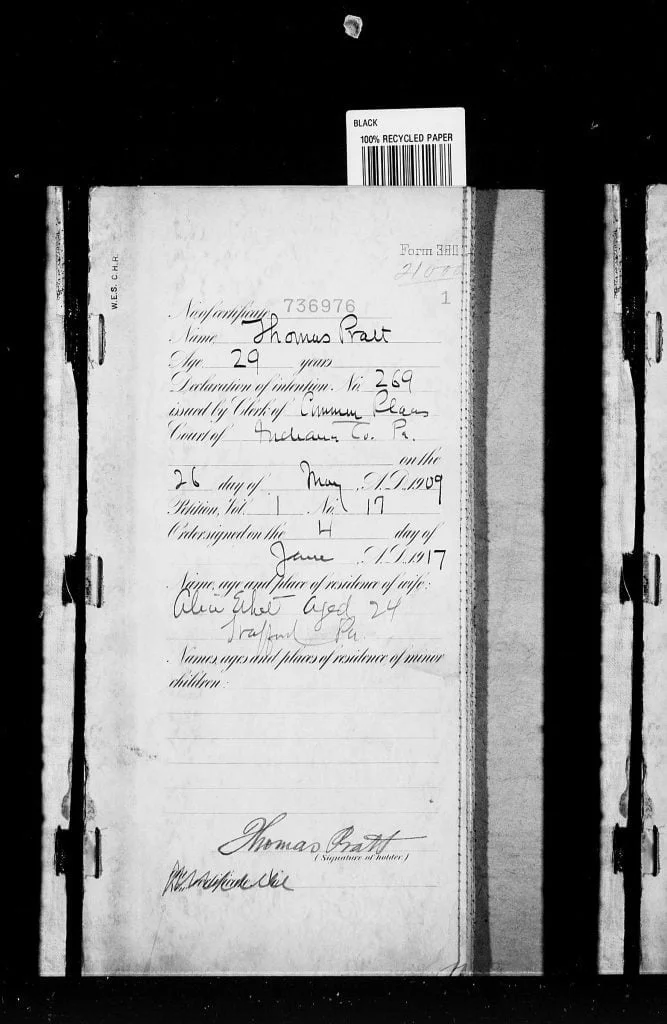 BLACK
100% RECYCLED PAPER
W.E.S. C.H.R.
Form
1
No. of certificate, 736976
Name, Thomas Pratt
Age, 29 years
Declaration of intention, No. 269
issued by Clerk of Common Pleas
Court of Indiana Co. Pa.
on the
26 day of May, A.D. 1909
Petition, Vol. 1 No. 17
Order signed on the 4 day of
June, A.D. 1917
Name, age and place of residence of wife:
Aged 24
Pa.
Names, ages and places of residence of minor
children:
Thomas Pratt
(Signature of holder.)